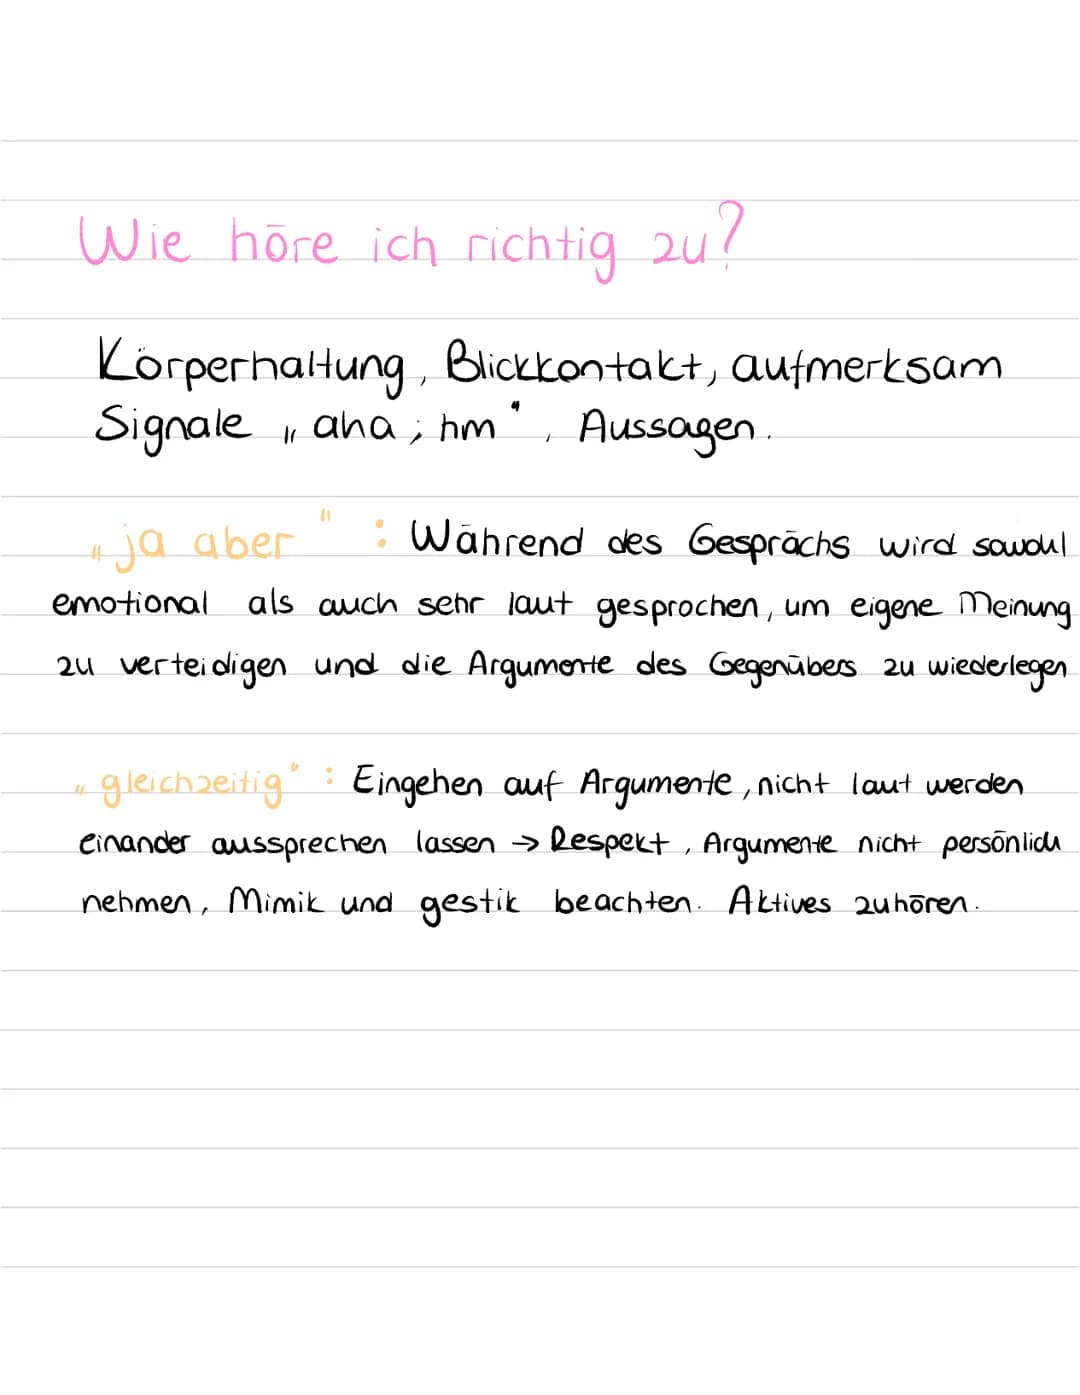 Wie höre ich richtig zu?
Körperhaltung, Blickkontakt, aufmerksam
Signale „aha; hm“, Aussagen.
„ja aber“ : Während des Gesprächs wird sowohl
emotional als auch sehr laut gesprochen, um eigene Meinung
zu verteidigen und die Argumente des Gegenübers zu wiederlegen
„gleichzeitig“ : Eingehen auf Argumente, nicht laut werden
einander aussprechen lassen → Respekt, Argumente nicht persönlich
nehmen, Mimik und gestik beachten. Aktives zuhören.